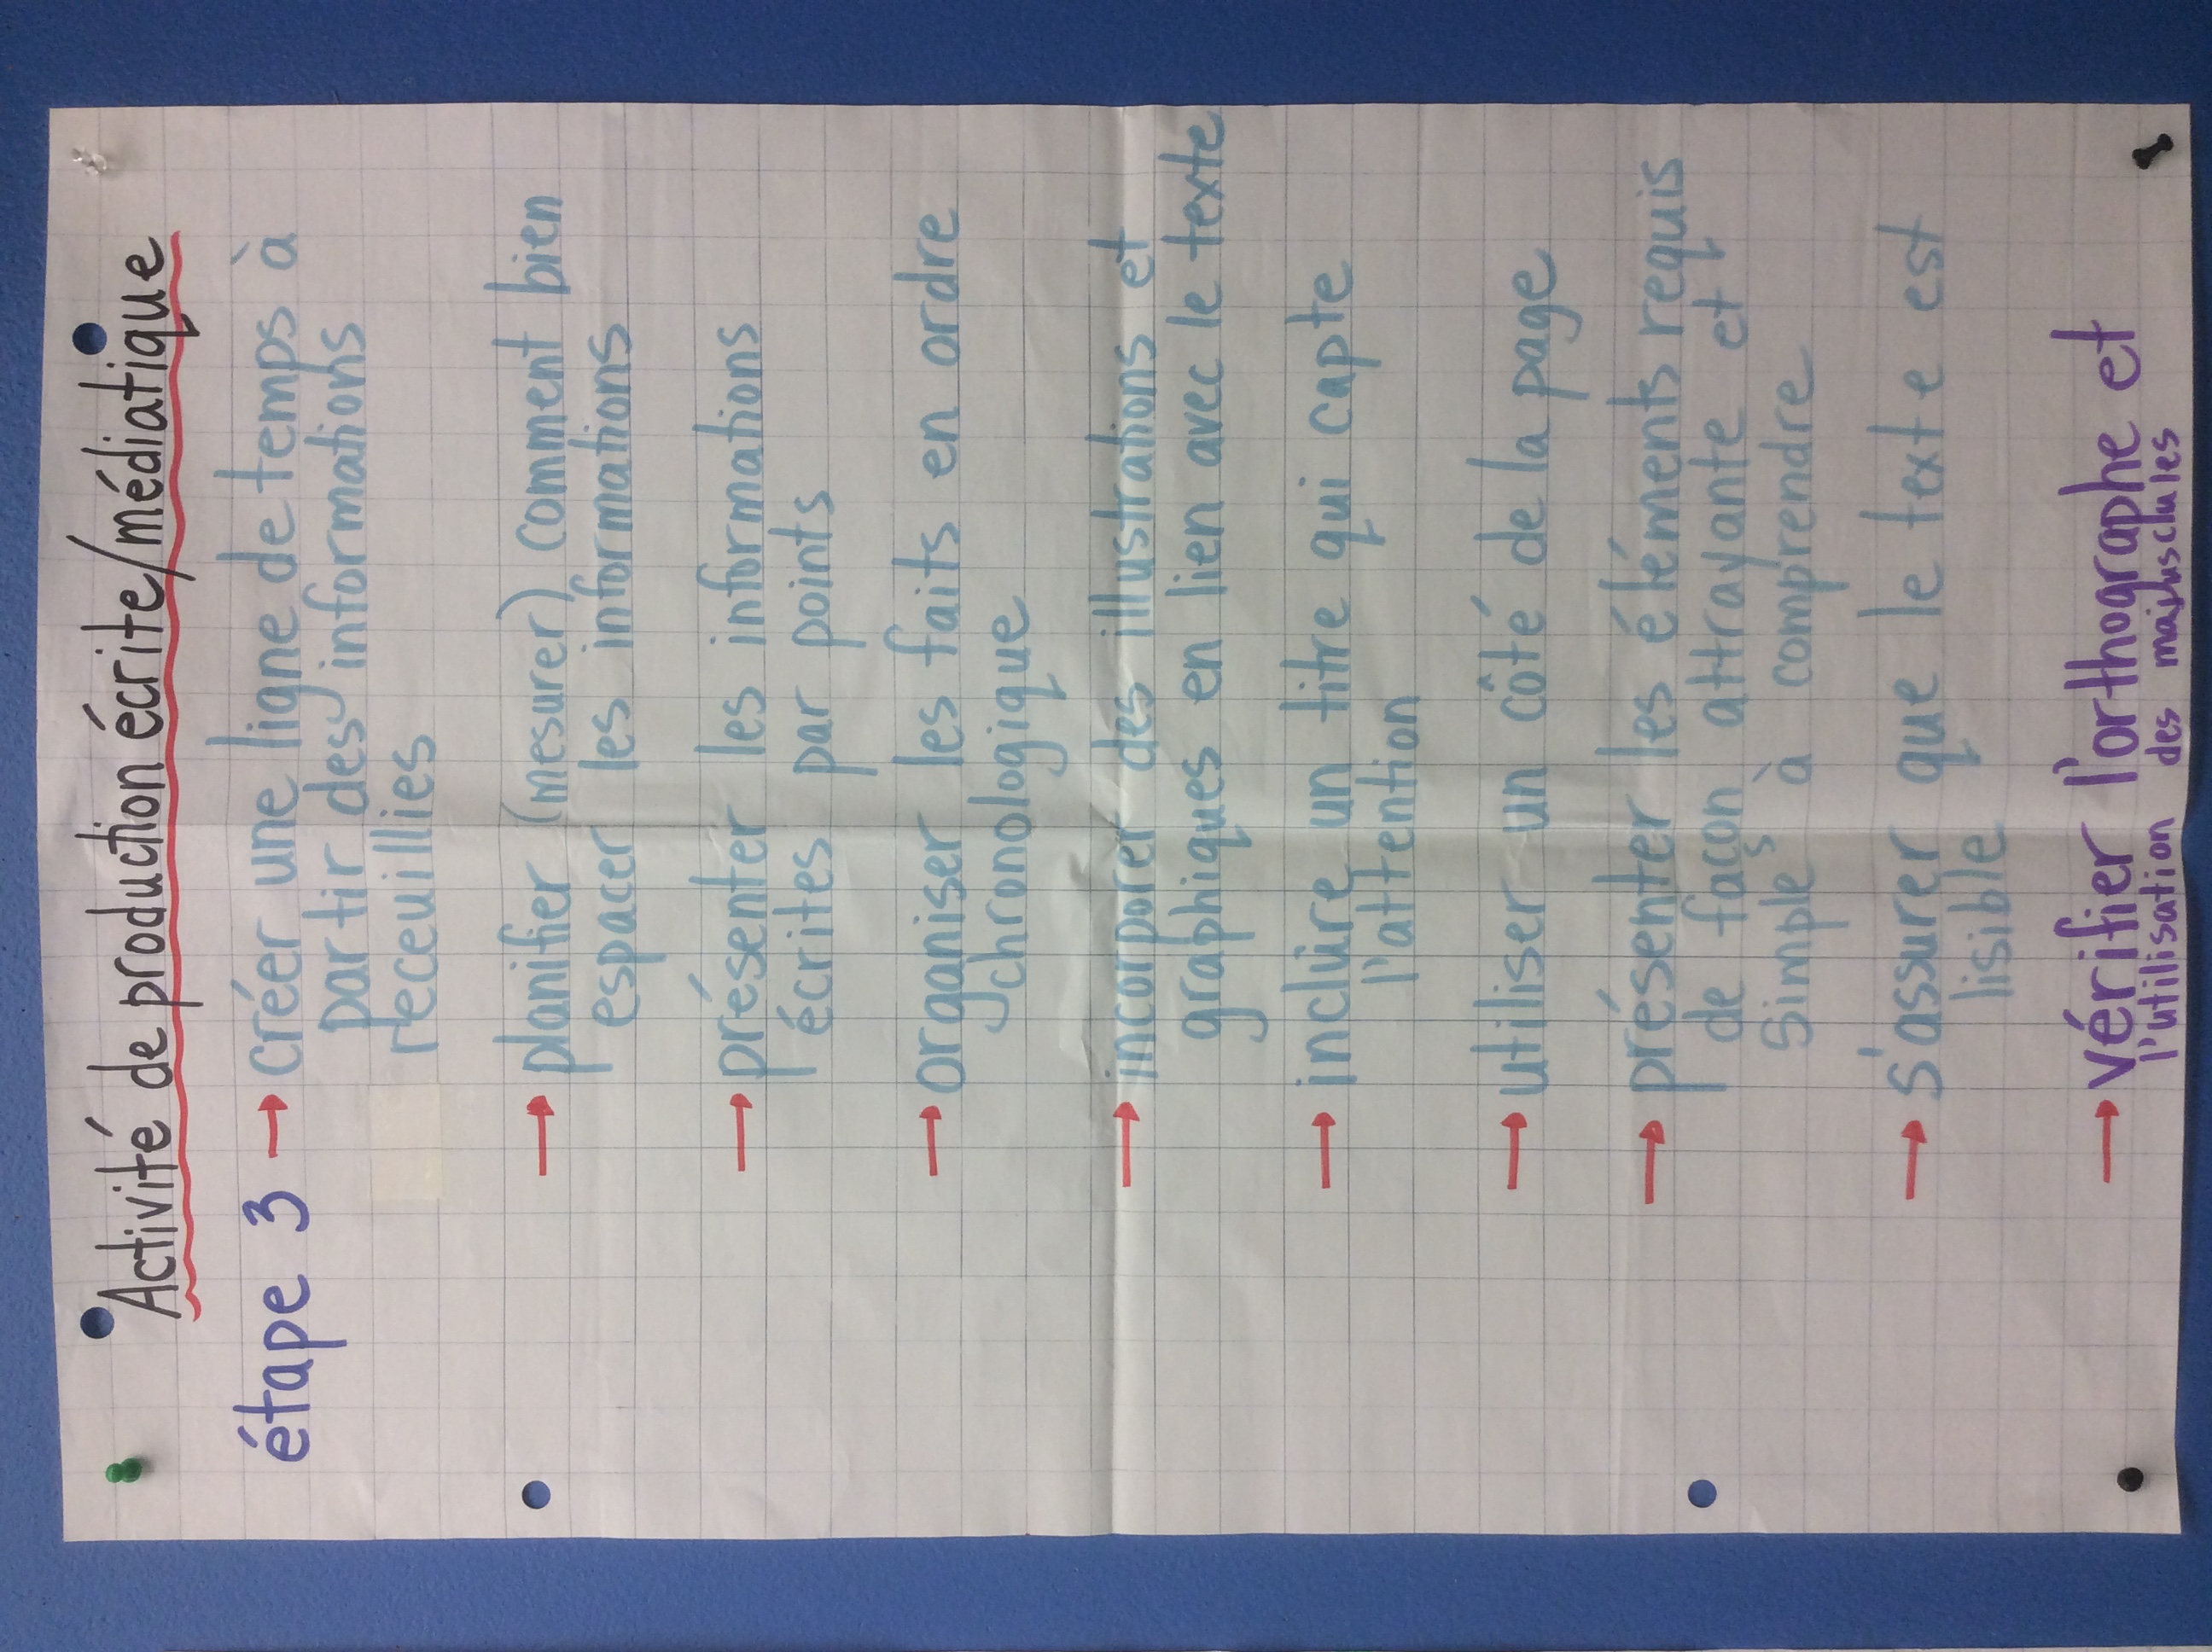 Activité de production écrite/médiatique
étape 3 → créer une ligne de temps à
partir des informations
receuillies
→ planifier (mesurer) comment bien
espacer les informations
→ présenter les informations
écrites par points
→ organiser les faits en ordre
chronologique
→ incorporer des illustrations et
graphiques en lien avec le texte
→ inclure un titre qui capte
l'attention
→ utiliser un côté de la page
→ présenter les éléments requis
de façon attrayante et
simples à comprendre
→ s'assurer que le texte est
lisible
→ vérifier l'orthographe et
l'utilisation des majusclules